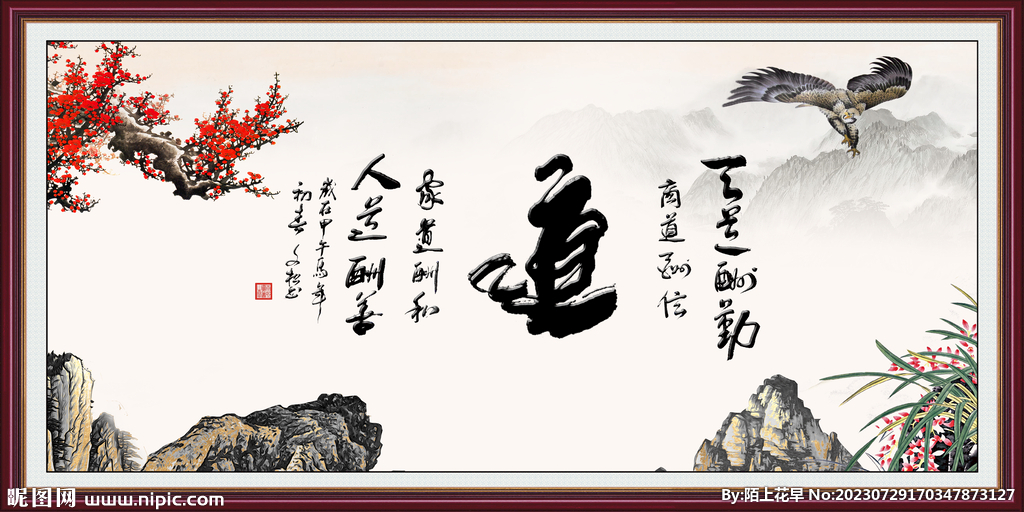 天道酬勤
商道酬信
道
家道酬和
人道酬善
歲在甲午馬年
初春
昵图网 www.nipic.com
By:陌上花早 No:20230729170347873127